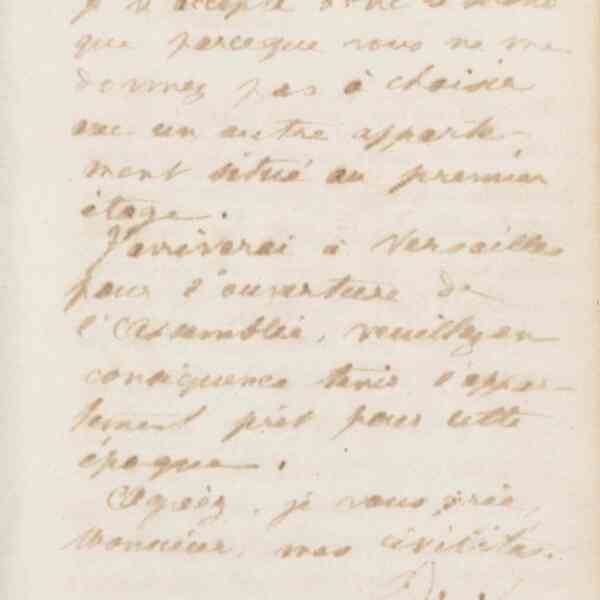 que parceque vous ne me
donnez pas à choisir
avec un autre apparte-
ment situé au premier
étage.
J'arriverai à Versailles
pour l'ouverture de
l'Assemblée, veuillez en
conséquence tenir l'appar-
tement prêt pour cette
époque.
Agréez, je vous prie,
Monsieur, mes civilités.